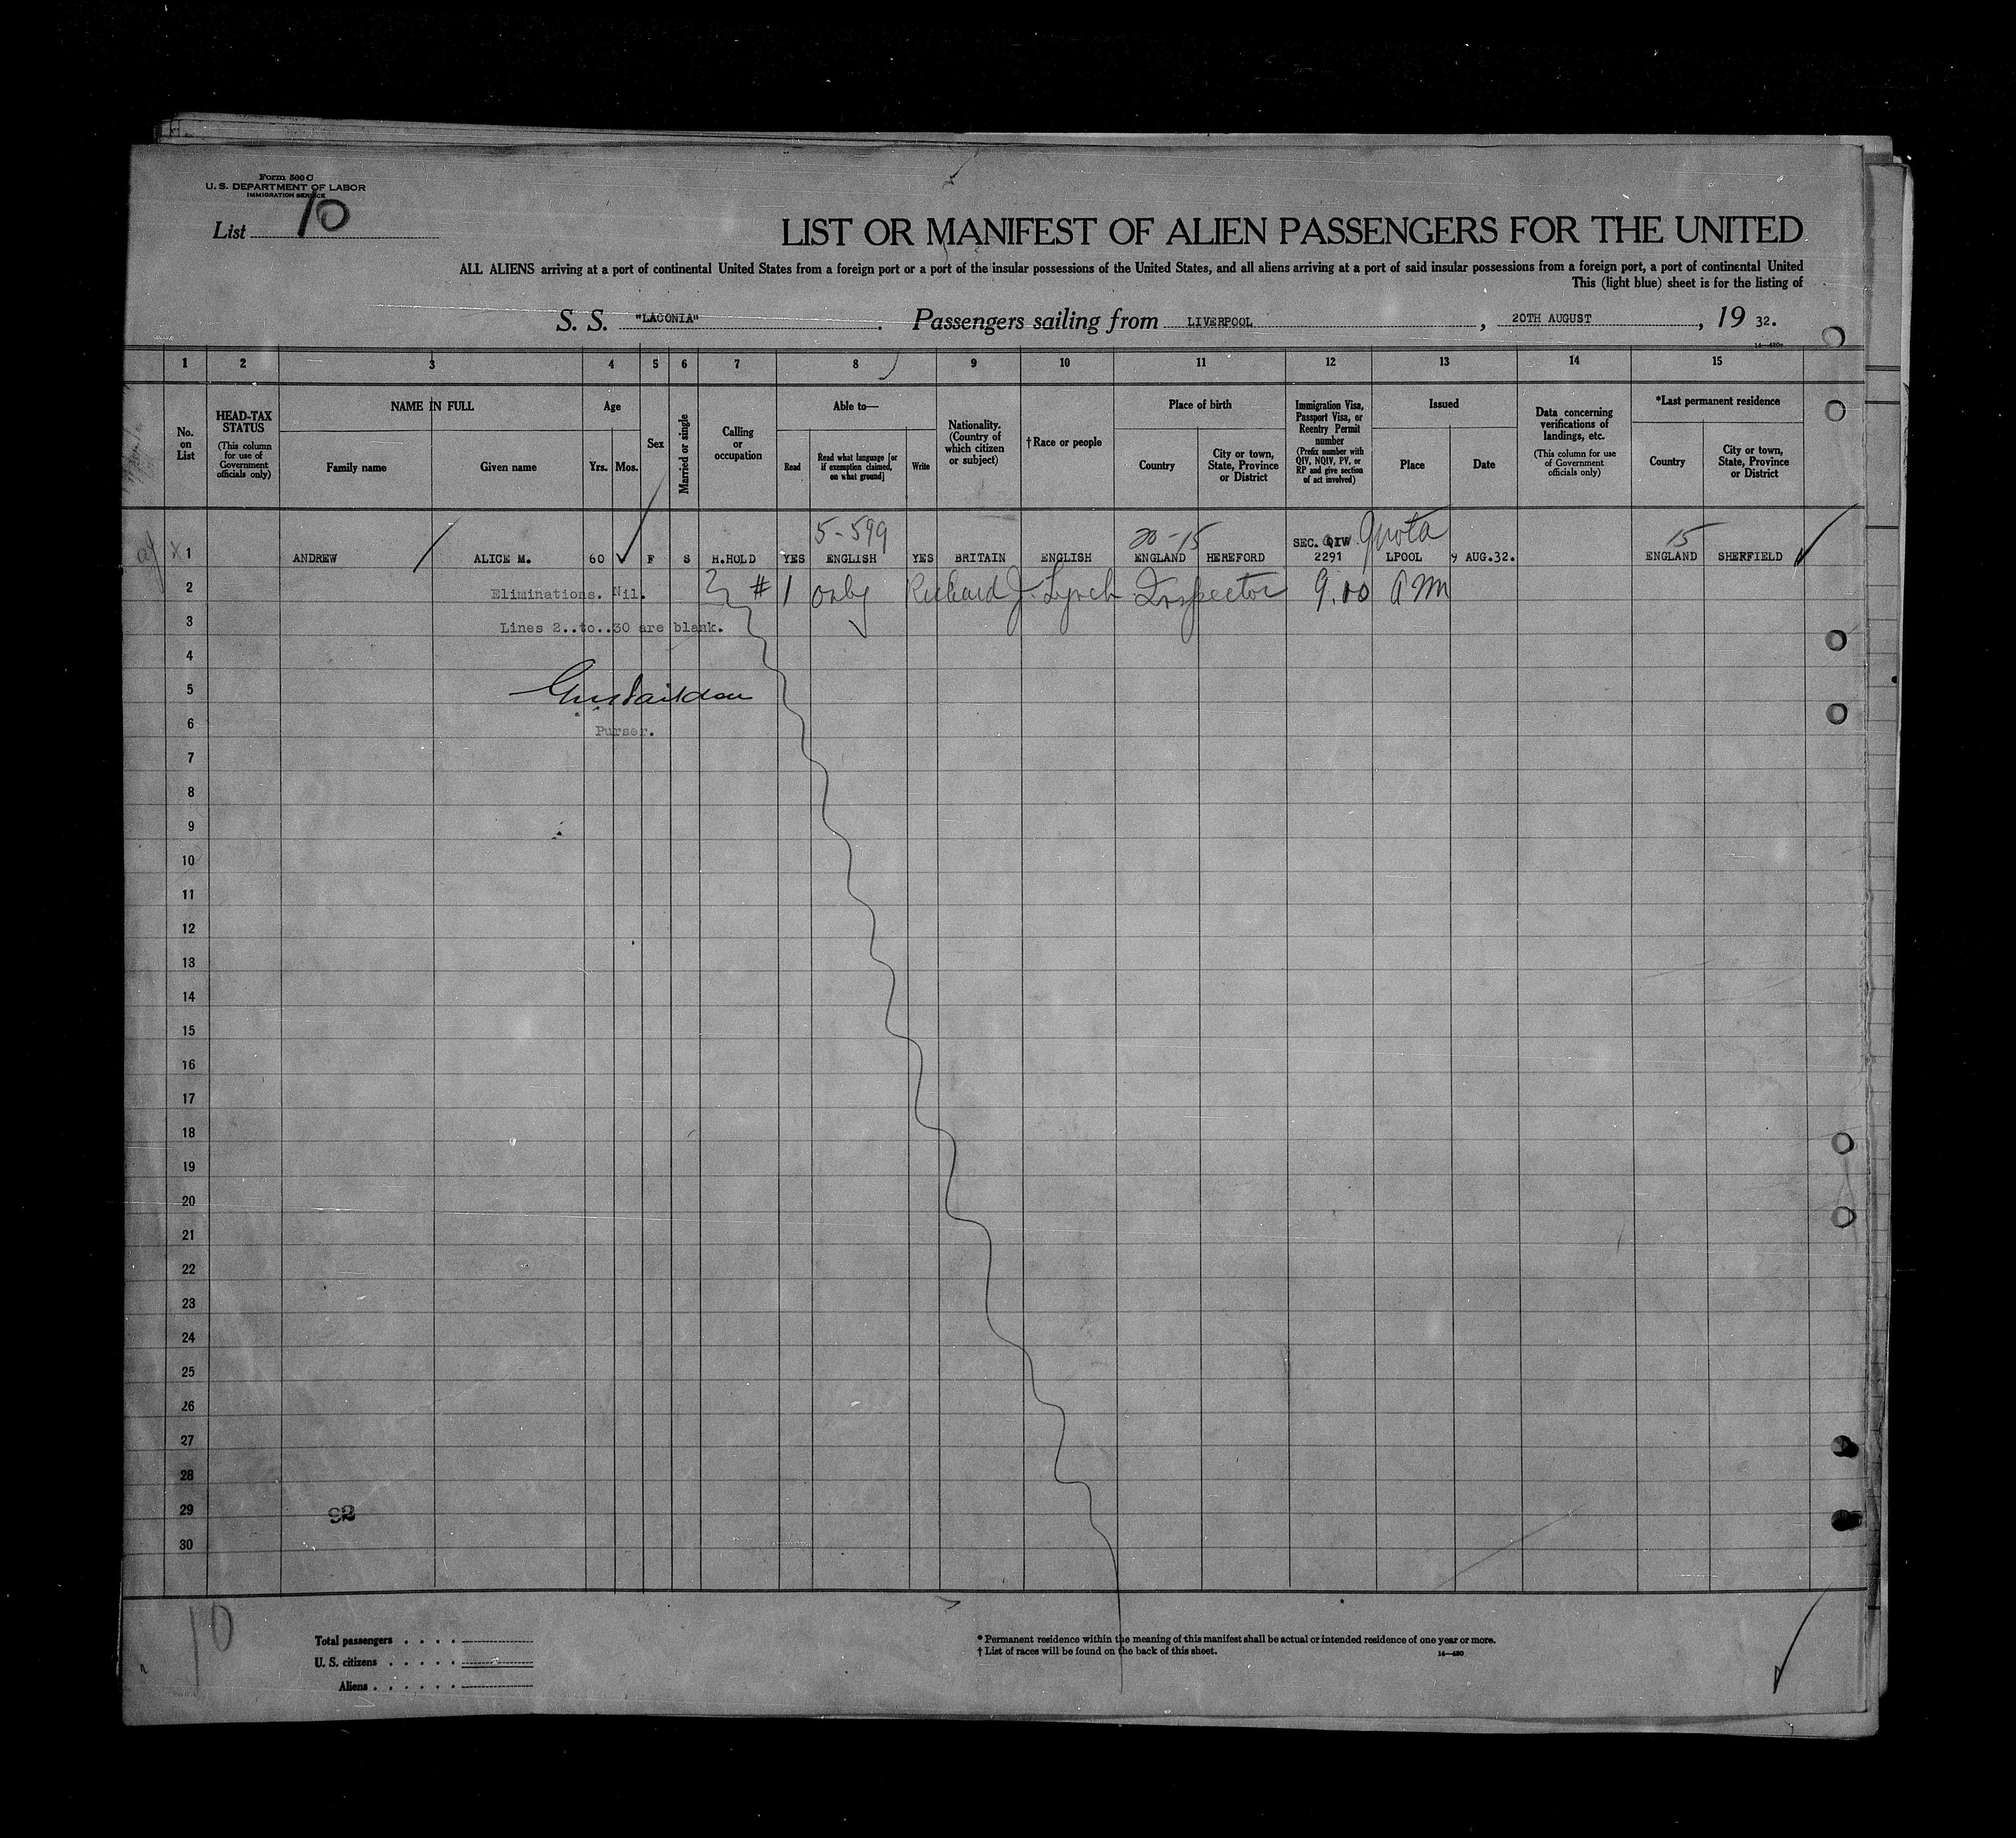 Form 500 C
U. S. DEPARTMENT OF LABOR
IMMIGRATION SERVICE
List 10
LIST OR MANIFEST OF ALIEN PASSENGERS FOR THE UNITED
ALL ALIENS arriving at a port of continental United States from a foreign port or a port of the insular possessions of the United States, and all aliens arriving at a port of said insular possessions from a foreign port, a port of continental United
This (light blue) sheet is for the listing of
S. S. "LACONIA". Passengers sailing from LIVERPOOL, 20TH AUGUST, 19 32.
14—430a
1 2 3 4 5 6 7 8 9 10 11 12 13 14 15
No. on List
HEAD-TAX STATUS (This column for use of Government officials only)
NAME IN FULL
Family name
Given name
Age
Yrs. Mos.
Sex
Married or single
Calling or occupation
Able to—
Read
Read what language [or if exemption claimed, on what ground]
Write
Nationality. (Country of which citizen or subject)
†Race or people
Place of birth
Country
City or town, State, Province or District
Immigration Visa, Passport Visa, or Reentry Permit number (Prefix number with QIV, NQIV, PV, or RP and give section of act involved)
Issued
Place
Date
Data concerning verifications of landings, etc. (This column for use of Government officials only)
*Last permanent residence
Country
City or town, State, Province or District
5-599 20-15 SEC. QIV Quota 15
X 1 ANDREW ALICE M. 60 F S H.HOLD YES ENGLISH YES BRITAIN ENGLISH ENGLAND HEREFORD 2291 LPOOL 9 AUG.32. ENGLAND SHERFIELD
2 Eliminations. Nil. # 1 only Richard J. Lynch Inspector 9.10 AM
3 Lines 2..to..30 are blank.
4
5
6 Purser.
7
8
9
10
11
12
13
14
15
16
17
18
19
20
21
22
23
24
25
26
27
28
29 92
30
10
Total passengers . . . .
U. S. citizens . . . . .
Aliens . . . . . .
* Permanent residence within the meaning of this manifest shall be actual or intended residence of one year or more.
† List of races will be found on the back of this sheet.
14—430